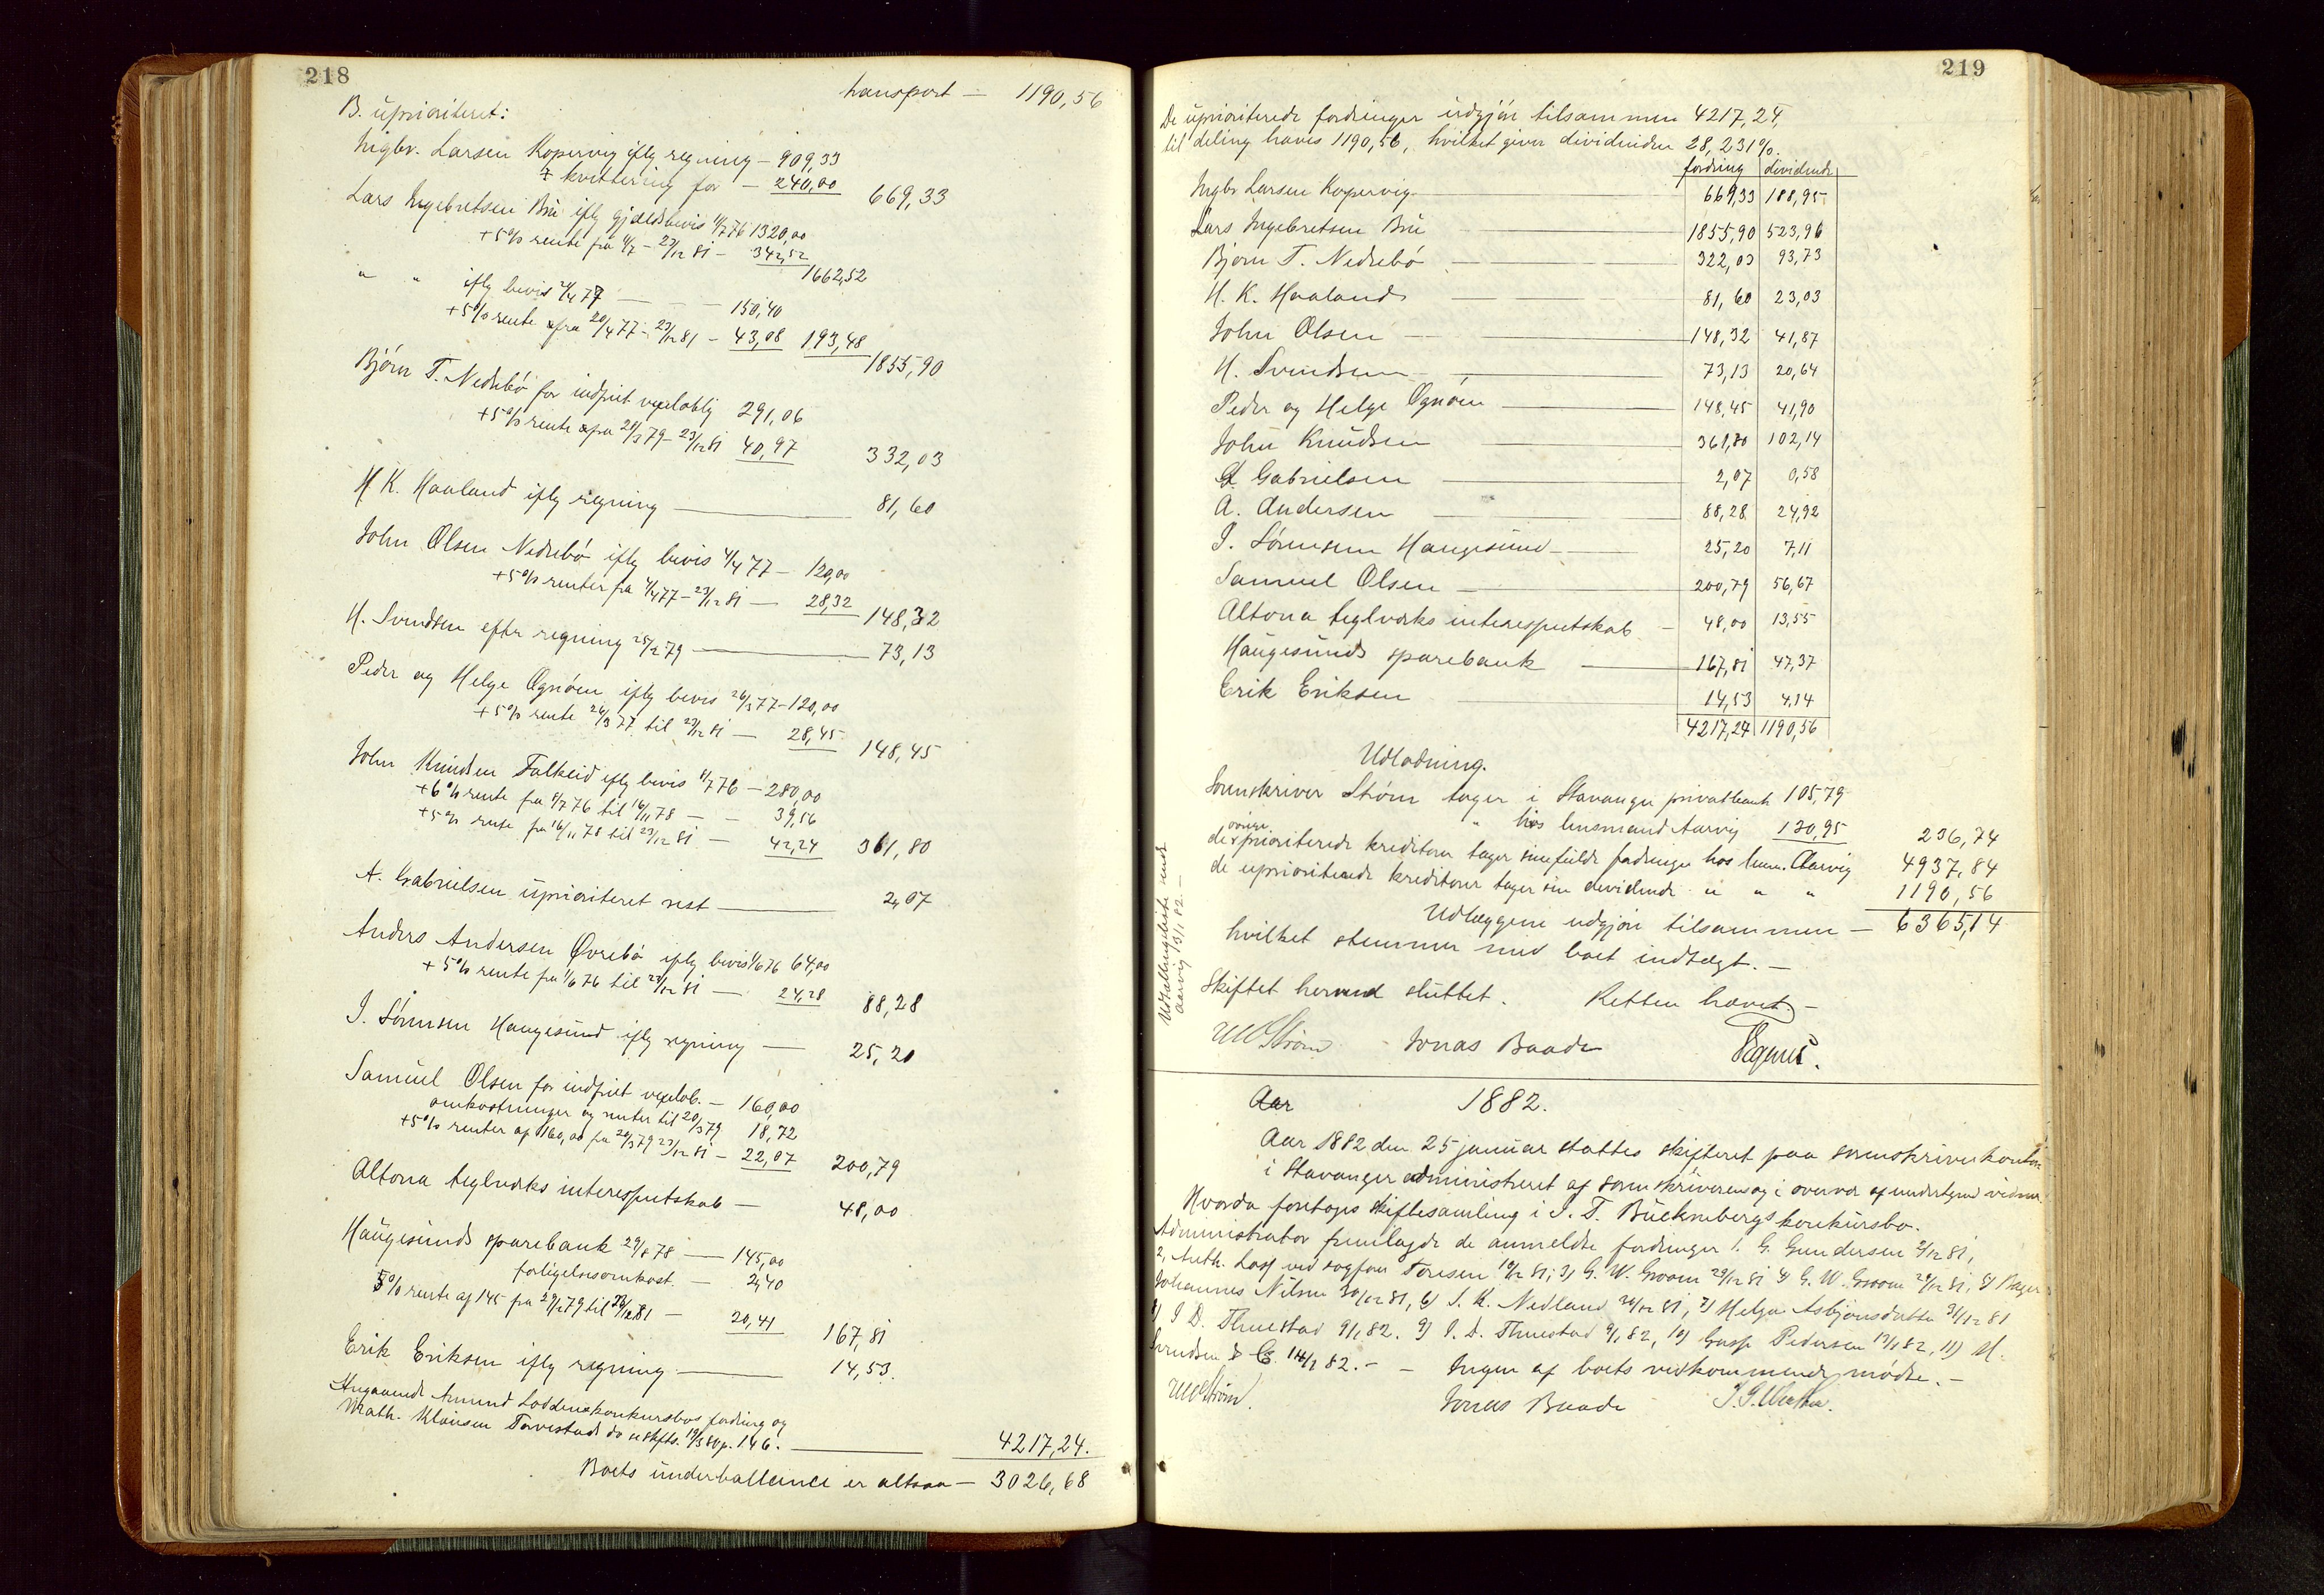 218
transport — 1190,56
B. uprioriteret:
Ingbr. Larsen Kopervig iflg regning — 909,33
÷ kvittering for — 240,00 669,33
Lars Ingebretsen Bru iflg gjældsbevis 4/7 76 1320,00
+5% rente fra 4/7 – 23/12 81 – 342,52
1662,52
" " iflg bevis 4/4 77 — — — 150,40
+5% rente fra 20/4 77 – 23/12 81 – 43,08 193,48
1855,90
Bjørn T. Nedrebø for indfriet vexeloblig 291,06
+5% rente fra 20/3 79 – 23/12 81 40,97 332,03
H K. Haaland iflg regning — 81,60
John Olsen Nedrebø iflg bevis 4/4 77 — 120,00
+5% renter fra 4/4 77 – 23/12 81 — 28,32 148,32
H. Svendsen efter regning 25/2 79 — 73,13
Peder og Helge Øgnøen iflg bevis 26/3 77 – 120,00
+5% rente 26/3 77 til 23/12 81 — 28,45 148,45
John Knudsen Falkeid iflg bevis 8/7 76 — 280,00
+6% rente fra 8/7 76 til 16/11 78 — — 39,56
+5% rente fra 16/11 78 til 23/12 81 — 42,24 361,80
A. Gabrielsen uprioriteret rest — 2,07
Anders Andersen Øvrebø iflg bevis 1/6 76 64,00
+5% rente fra 1/6 76 til 23/12 81 — 24,28 88,28
J. Sørensen Haugesund iflg regning — 25,20
Samuel Olsen for indfriet vexelob. — 160,00
omkostninger og renter til 20/3 79 18,72
+5% renter af 160,00 fra 20/3 79 23/12 81 – 22,07 200,79
Altona teglværks interesseutskab — 48,00
Haugesunds sparebank 29/8 78 — 145,00
forligelsesomkost. — 2,40
5% rente af 145 fra 29/1 79 til 23/12 81 — 20,41 167,81
Erik Eriksen iflg regning — 14,53.
Angaaende Amund Loddens konkursbos fordring og
Math. Klausen Torvestads do se skifts. 19/3 80 p. 146. — 4217,24.
Boets underballance er altsaa — 3026,68
219
De uprioriterede fordringer udgjør tilsammen 4217,24,
til deling haves 1190,56, hvilket giver dividenden 28,231%.
fordring dividende
Ingbr Larsen Kopervig 669,33 188,95
Lars Ingebretsen Bru 1855,90 523,96
Bjørn T. Nedrebø 322,03 93,73
H. K. Haaland 81,60 23,03
John Olsen 148,32 41,87
H. Svendsen 73,13 20,64
Peder og Helge Øgnøen 148,45 41,90
John Knudsen 361,80 102,14
A Gabrielsen 2,07 0,58
A. Andersen 88,28 24,92
J. Sørensen Haugesund 25,20 7,11
Samuel Olsen 200,79 56,67
Altona teglværks interesseutskab 48,00 13,55
Haugesunds sparebank 167,81 47,37
Erik Eriksen 14,53 4,14
4217,24 1190,56
Udlodning.
Sorenskriver Strøm tager i Stavanger privatbank 105,79
" hos lensmand Aarvig 130,95 236,74
de øvrige prioriterede kreditorer tager sine fulde fordringer hos lensm. Aarvig 4937,84
de uprioriterede kreditorer tager sin dividende " " " 1190,56
Udlæggene udgjør tilsammen — 6365,14
hvilket stemmer med boets indtægt. —
Udbetalingsliste sendt
Aarvig 15/1 82 —
Skiftet hermed sluttet. Retten hævet. —
Strøm Jonas Baade
Aar 1882.
Aar 1882 den 25 januar stattes skifteret paa sorenskriverkontor
i Stavanger administreret af sorenskriveren og i overvær af undertegnede vidner.
Hvorda foretages skiftesamling i J. T. Buckenbergs konkursbo.
Administrator fremlagde de anmeldte fordringer 1. G. Gundersen 2/12 81,
2, Anth. Losj ved sagfører Toresen 19/12 81, 3) G. W. Groom 29/12 81 4) G. W. Groom 29/12 81, 5) Bager
Johannes Nilsen 30/12 81, 6) S. K. Nedland 30/12 81, 7) Helga Asbjørnsdatter 31/12 81
8) J D. Thuestad 9/1 82. 9) J. D. Thuestad 9/1 82, 10) Gusf Pedersen 13/1 82, 11) H.
Svendsen & Co. 14/1 82. — — Ingen af boets vedkommende mødte. —
Strøm. Jonas Baade